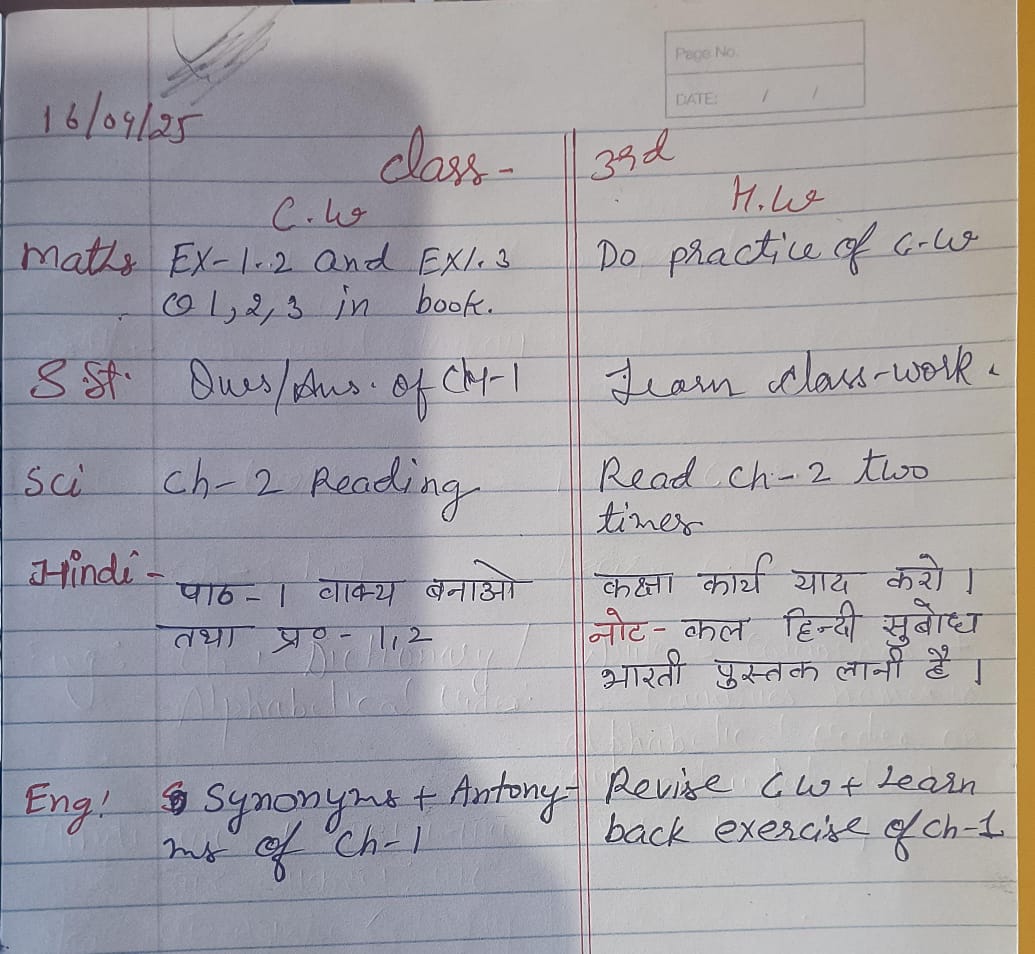 Page No.
DATE: / /
16/04/25
Class - 3rd
C.W H.W
Maths Ex-1.2 and Ex1.3 Do practice of C.W
Q 1,2,3 in book.
S St. Ques/Ans. of Ch-1 Learn class-work.
Sci Ch-2 Reading Read Ch-2 two
times
Hindi - पाठ-1 वाक्य बनाओ कक्षा कार्य याद करो।
तथा प्र०-1,2 नोट- कल हिन्दी सुबोध
भारती पुस्तक लानी है।
Eng! Synonyms + Antony- Revise C W + Learn
ms of Ch-1 back exercise of ch-1